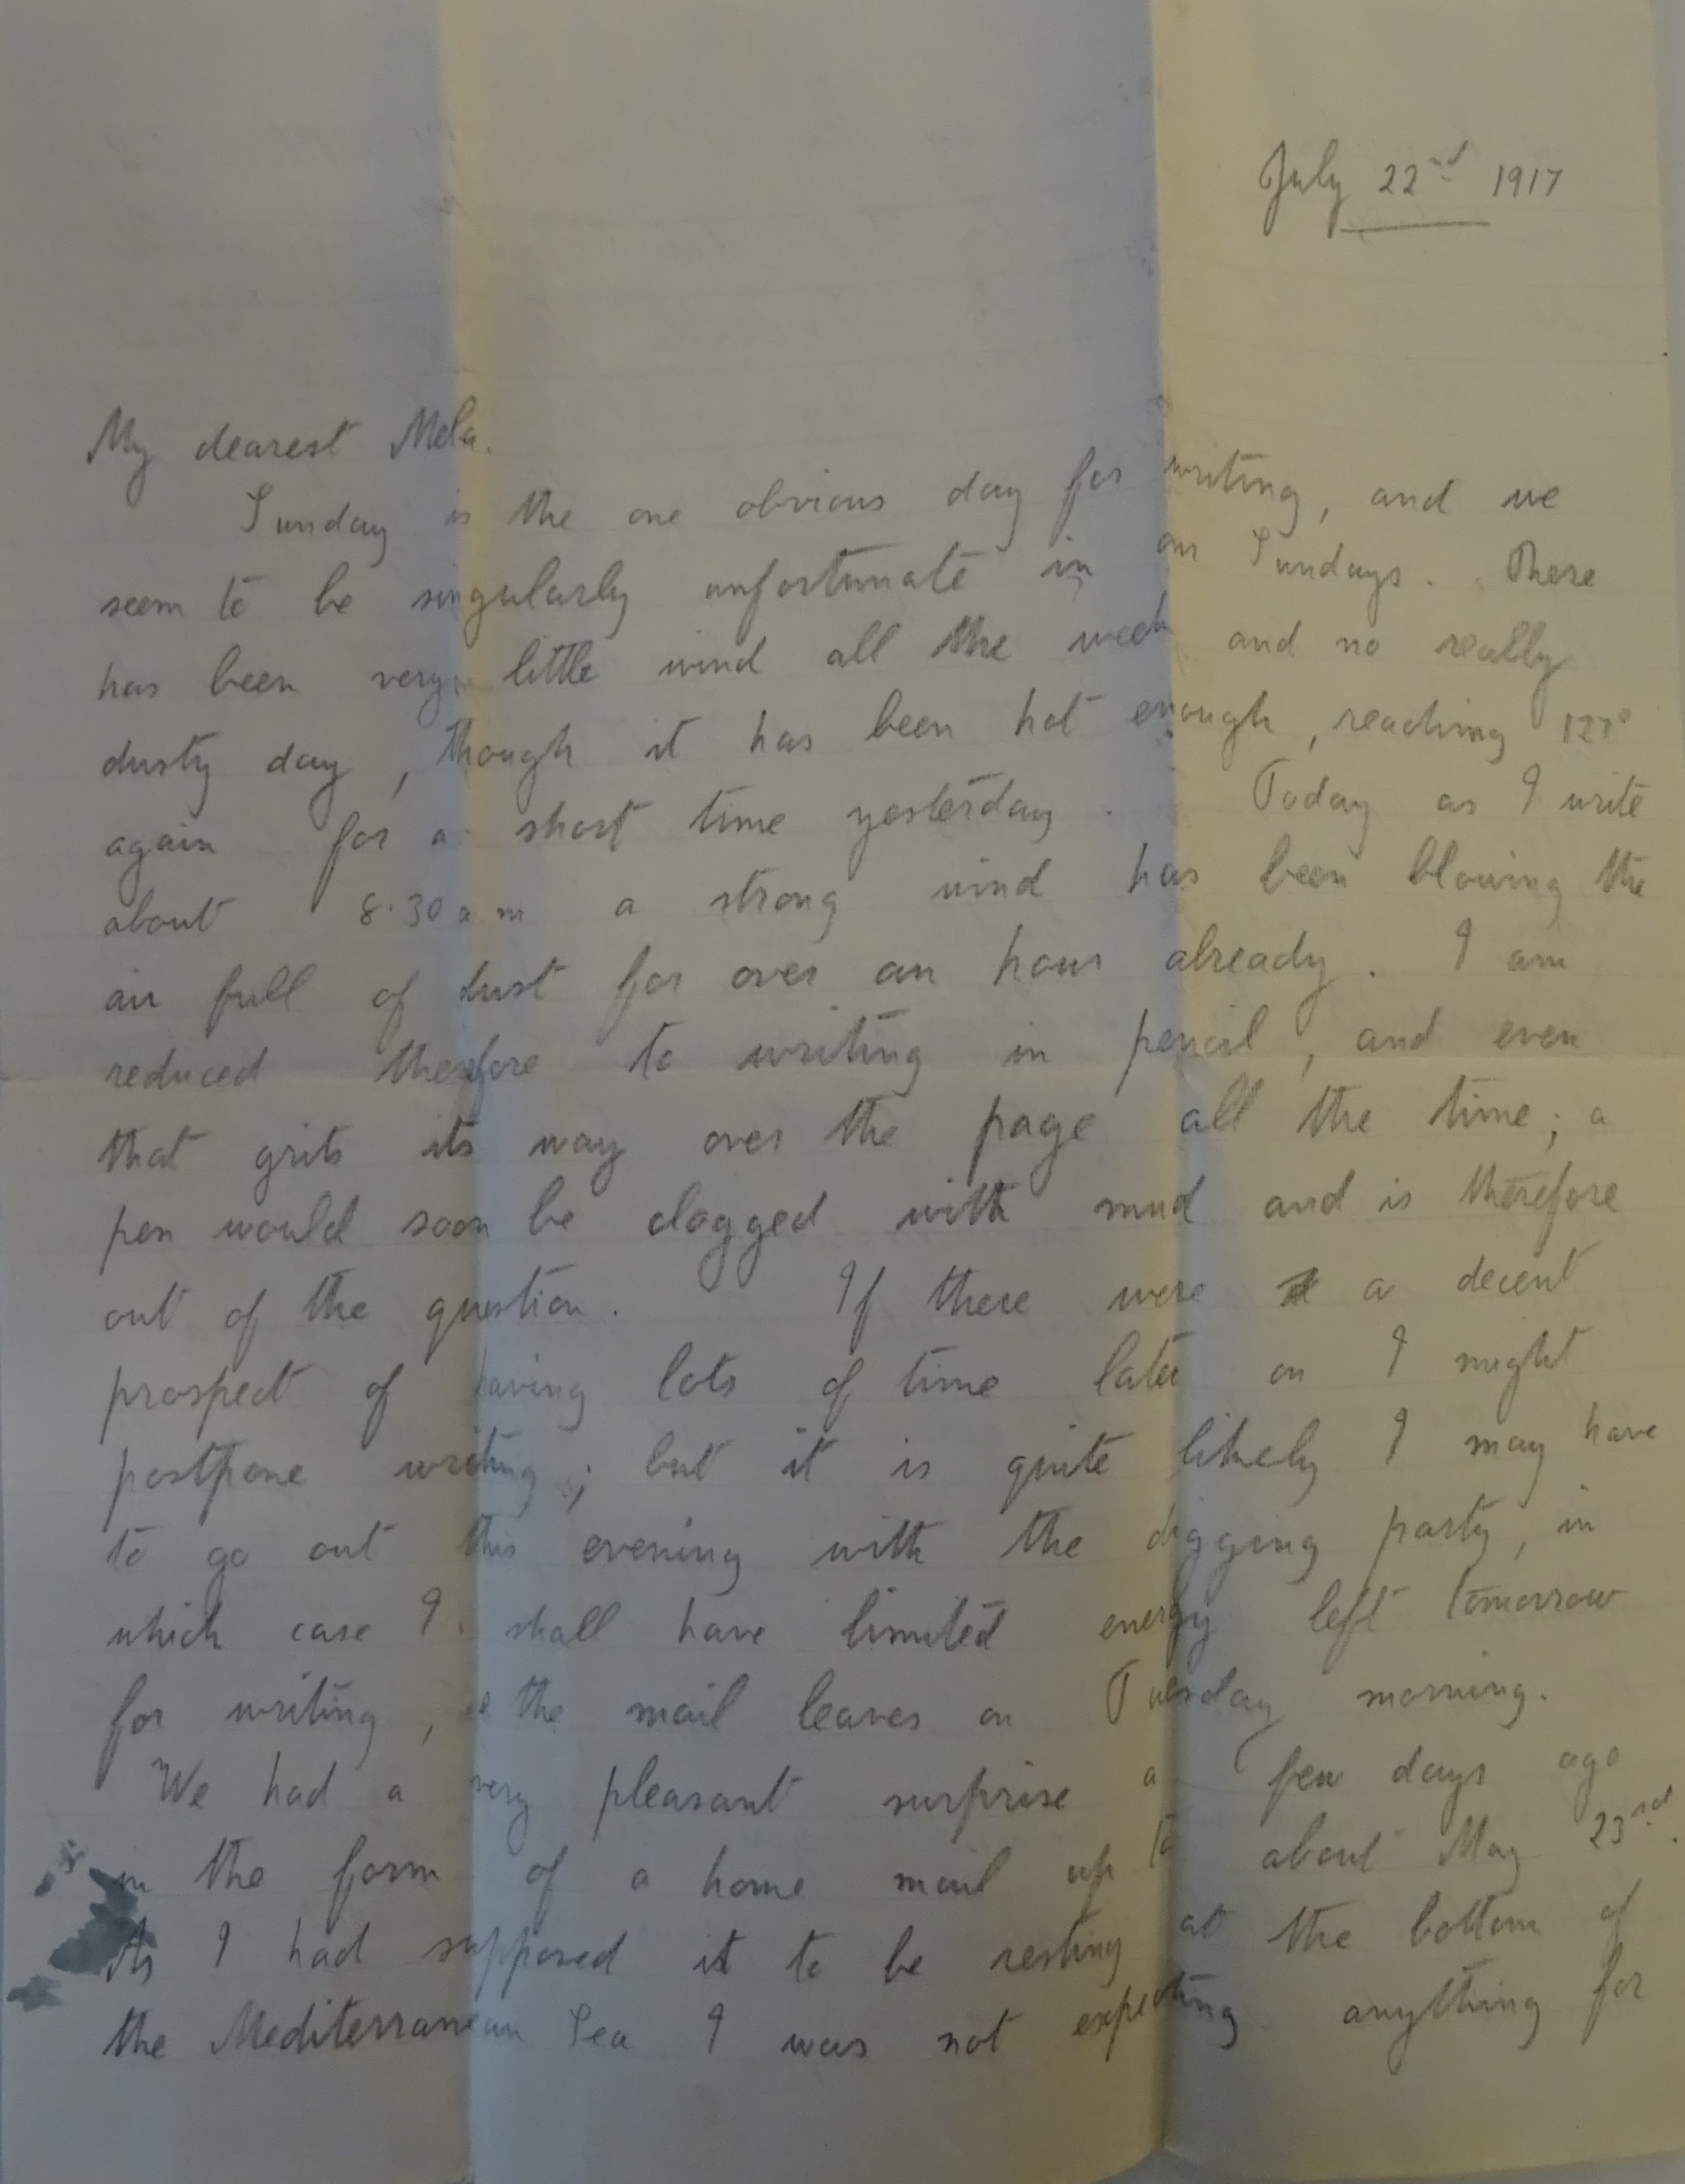 July 22nd 1917
My dearest Mela.
Sunday is the one obvious day for writing, and we
seem to be singularly unfortunate in our Sundays. There
has been very little wind all the week and no really
dusty day, though it has been hot enough, reaching 122°
again for a short time yesterday. Today as I write
about 8.30 a m a strong wind has been blowing the
air full of dust for over an hour already. I am
reduced therefore to writing in pencil, and even
that grits its way over the page all the time; a
pen would soon be clogged with mud and is therefore
out of the question. If there were a decent
prospect of having lots of time later on I might
postpone writing; but it is quite likely I may have
to go out this evening with the digging party, in
which case I shall have limited energy left tomorrow
for writing, & the mail leaves on Tuesday morning.
We had a very pleasant surprise a few days ago
in the form of a home mail up to about May 23rd.
As I had supposed it to be resting at the bottom of
the Mediterranean Sea I was not expecting anything for